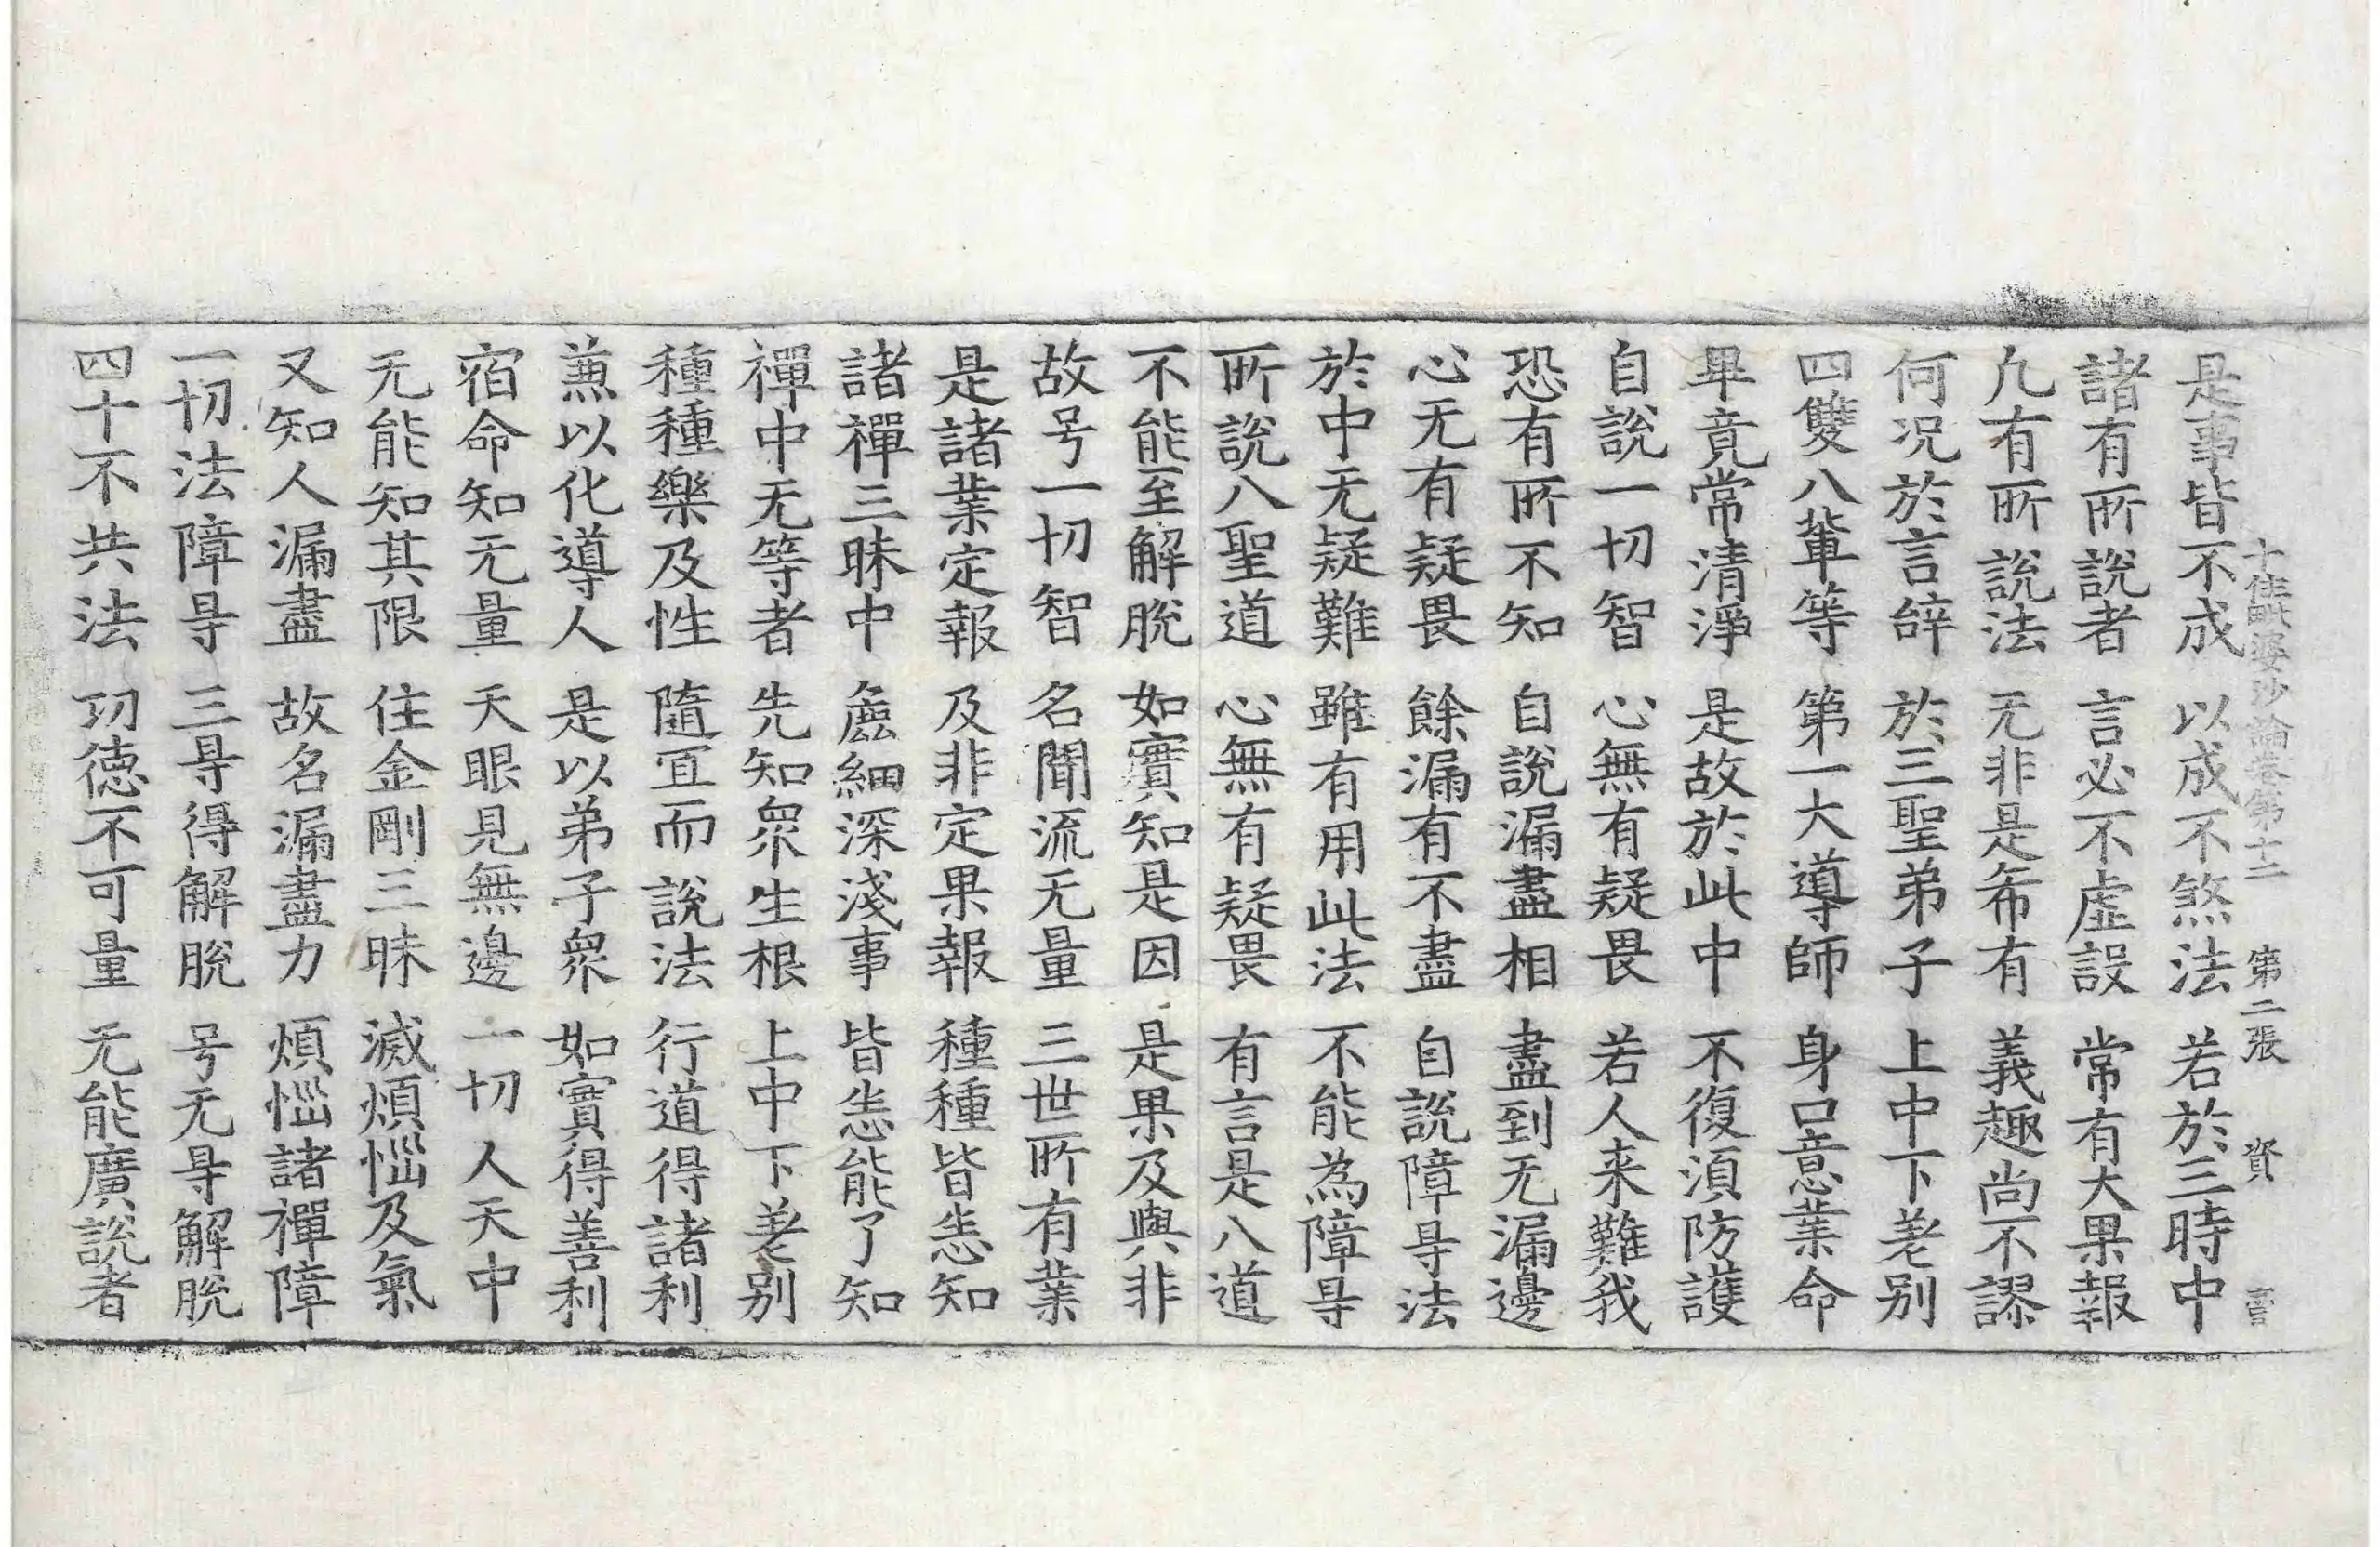 十住毗婆沙論卷第十二 第二張 資
是事皆不成 以成不煞法 若於三時中
諸有所說者 言必不虛設 常有大果報
凢有所說法 无非是希有 義趣尚不謬
何况於言辝 於三聖弟子 上中下差别
四雙八軰等 第一大導師 身口意業命
畢竟常清淨 是故於此中 不復湏防護
自說一切智 心無有疑畏 若人来難我
恐有所不知 自說漏盡相 盡到无漏邊
心无有疑畏 餘漏有不盡 自說障㝵法
於中无疑難 雖有用此法 不能為障㝵
所說八聖道 心無有疑畏 有言是八道
不能至解脫 如實知是因 是果及與非
故号一切智 名聞流无量 三世所有業
是諸業定報 及非定果報 種種皆悉知
諸禪三昧中 麁細深淺事 皆悉能了知
禪中无等者 先知衆生根 上中下差别
種種樂及性 隨冝而說法 行道得諸利
兼以化導人 是以弟子衆 如實得善利
宿命知无量 天眼見無邊 一切人天中
无能知其限 住金剛三昧 滅煩惱及氣
又知人漏盡 故名漏盡力 煩惱諸禪障
一切法障㝵 三㝵得解脫 号无㝵解脫
四十不共法 功德不可量 无能廣說者